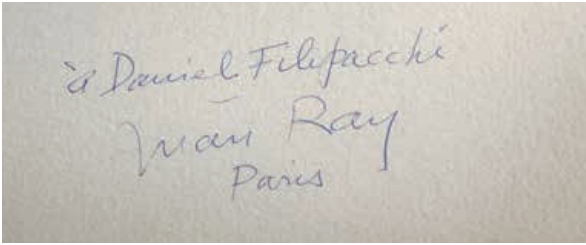 à Daniel Filipacchi
Man Ray
Paris